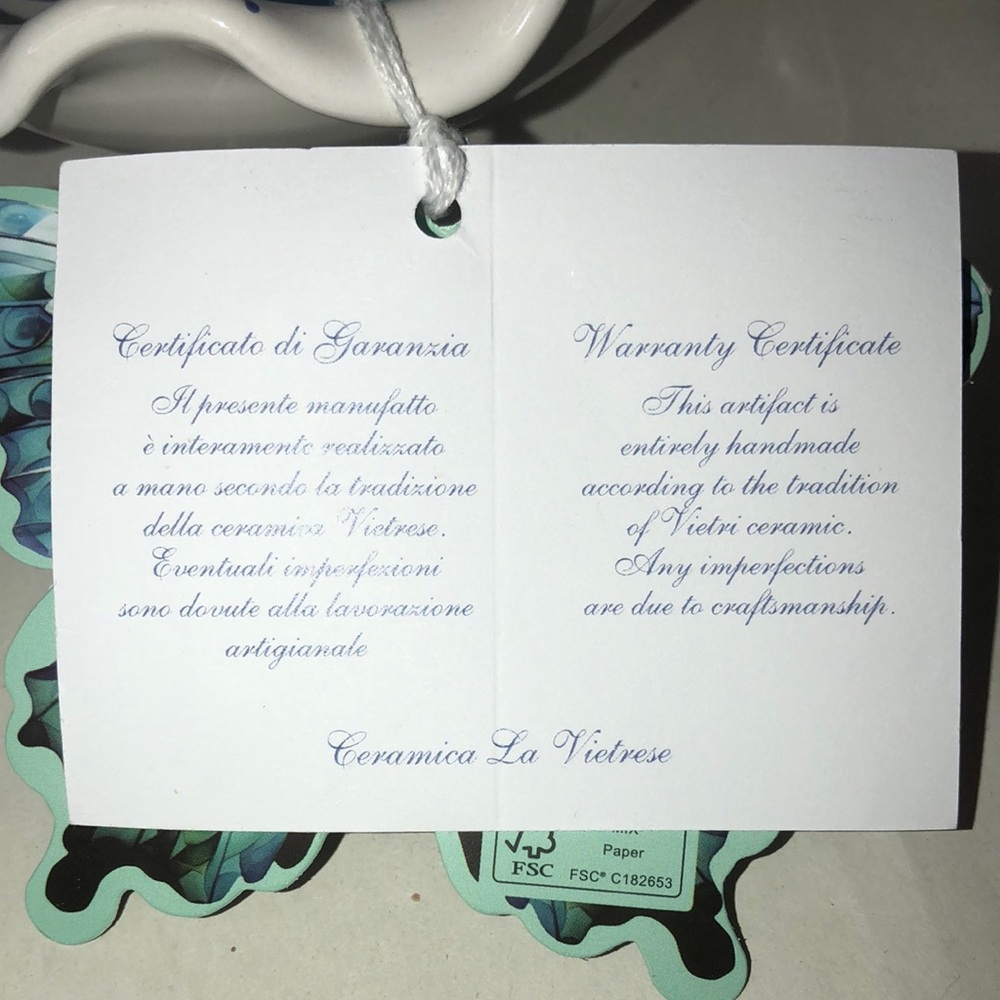 Certificato di Garanzia
Il presente manufatto
è interamente realizzato
a mano secondo la tradizione
della ceramica Vietrese.
Eventuali imperfezioni
sono dovute alla lavorazione
artigianale
Warranty Certificate
This artifact is
entirely handmade
according to the tradition
of Vietri ceramic.
Any imperfections
are due to craftsmanship.
Ceramica La Vietrese
MIX
Paper
FSC
FSC® C182653